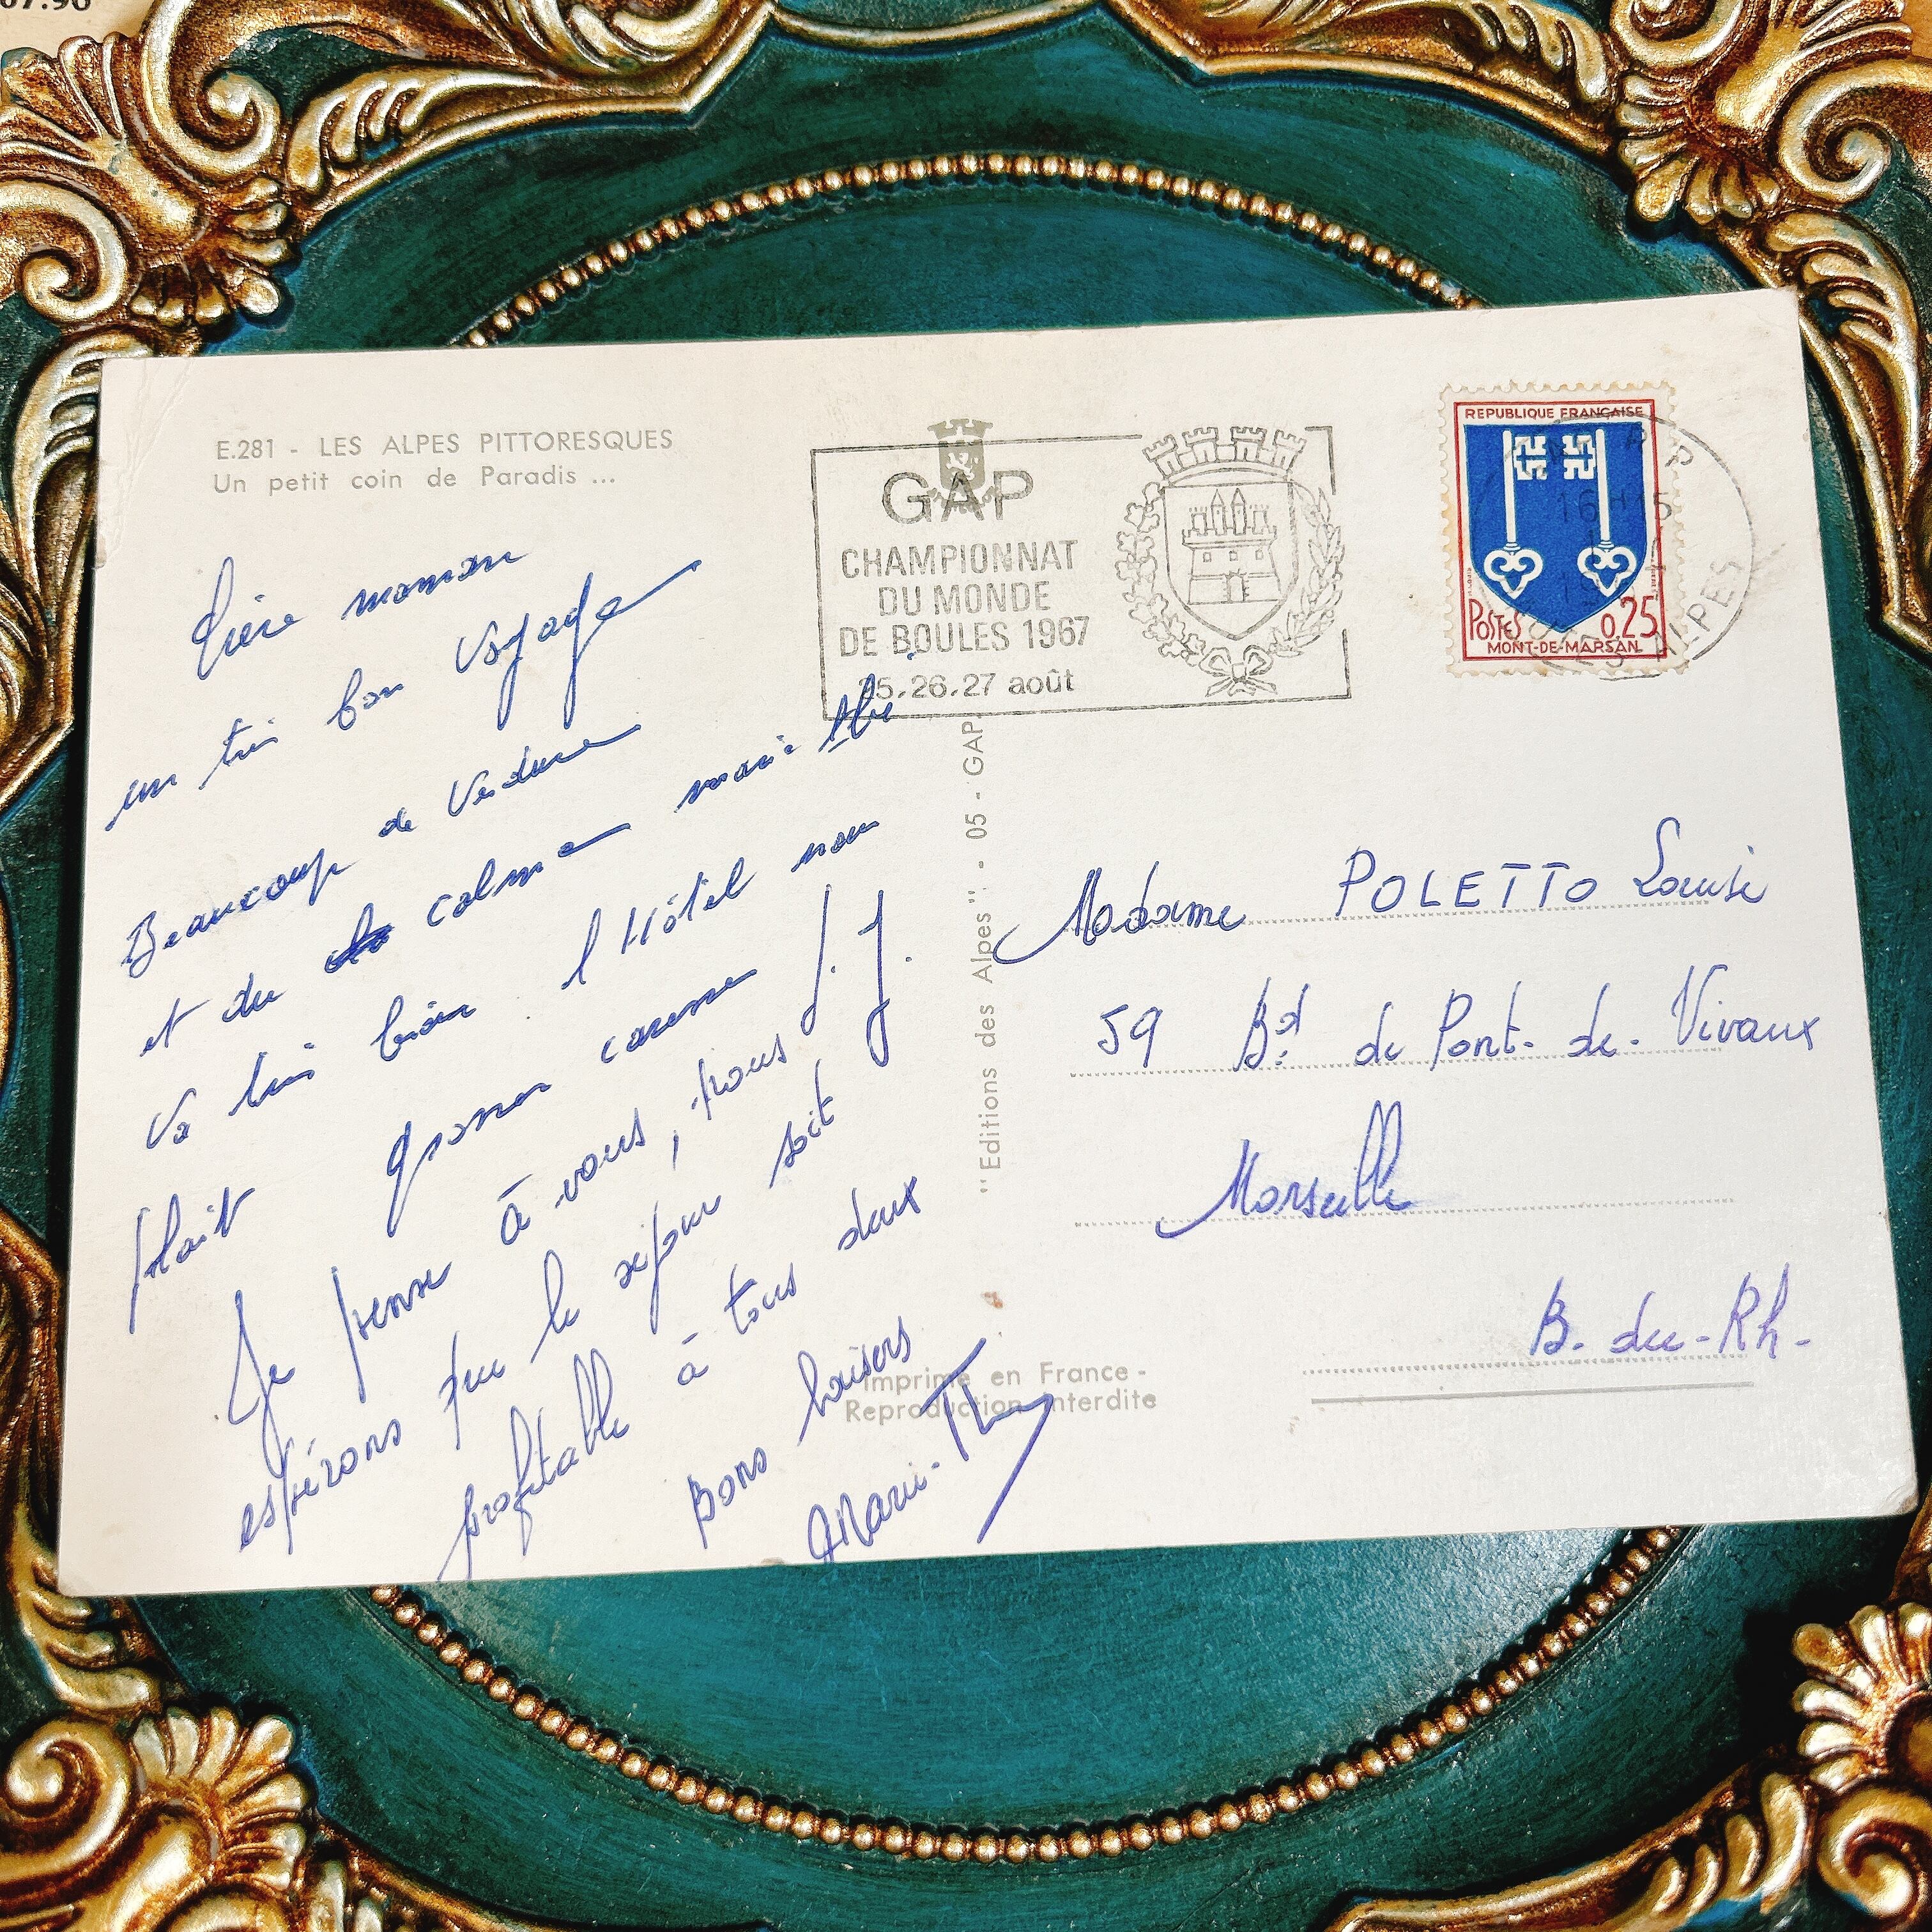 07.90
E.281 - LES ALPES PITTORESQUES
Un petit coin de Paradis ...
GAP
CHAMPIONNAT
DU MONDE
DE BOULES 1967
25.26.27 août
REPUBLIQUE FRANÇAISE
16H15
POSTES 0,25
MONT-DE-MARSAN
ALPES
Chère maman
un très bon voyage
Beaucoup de verdure
et du calme
va très bien l'Hôtel nous
plait J.J.
Je pense à vous, nous
espérons que le séjour soit
profitable à tous deux
Bons baisers
Marie-Th
"Editions des Alpes" - 05 - GAP
Imprimé en France -
Reproduction interdite
Madame POLETTO Louise
59 Bd de Pont-de-Vivaux
Marseille
B.-du-Rh-